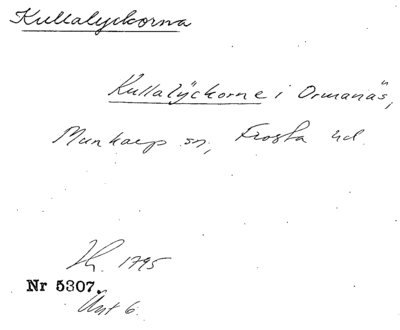 Kullalyckorna
Kullalÿckorne i Ormanäs,
Munkarp sn, Frosta hd.
1795
Nr 5307.
6.